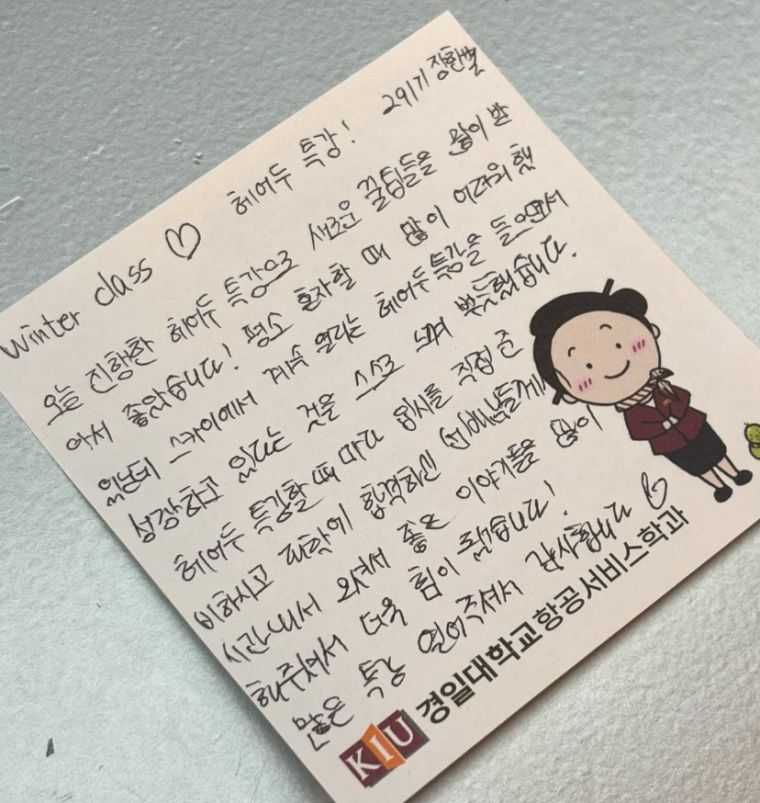 Winter class ♡ 헤어두 특강! 29기 장한별
오늘 진행한 헤어두 특강으로 새로운 꿀팁들을 많이 받
아서 좋았습니다! 평소 혼자할 때 많이 어려워 했
었는데 스카이에서 계속 열리는 헤어두 특강을 들으면서
성장하고 있다는 것을 스스로 느껴 뿌듯했습니다.
헤어두 특강할 때 마다 입시를 직접 준
비하시고 대학에 합격하신 선배님들께서
시간내서 오셔서 좋은 이야기들을 많이
해주셔서 더욱 힘이 됐습니다!
많은 특강 열어주셔서 감사합니다 ♡
KIU 경일대학교항공서비스학과